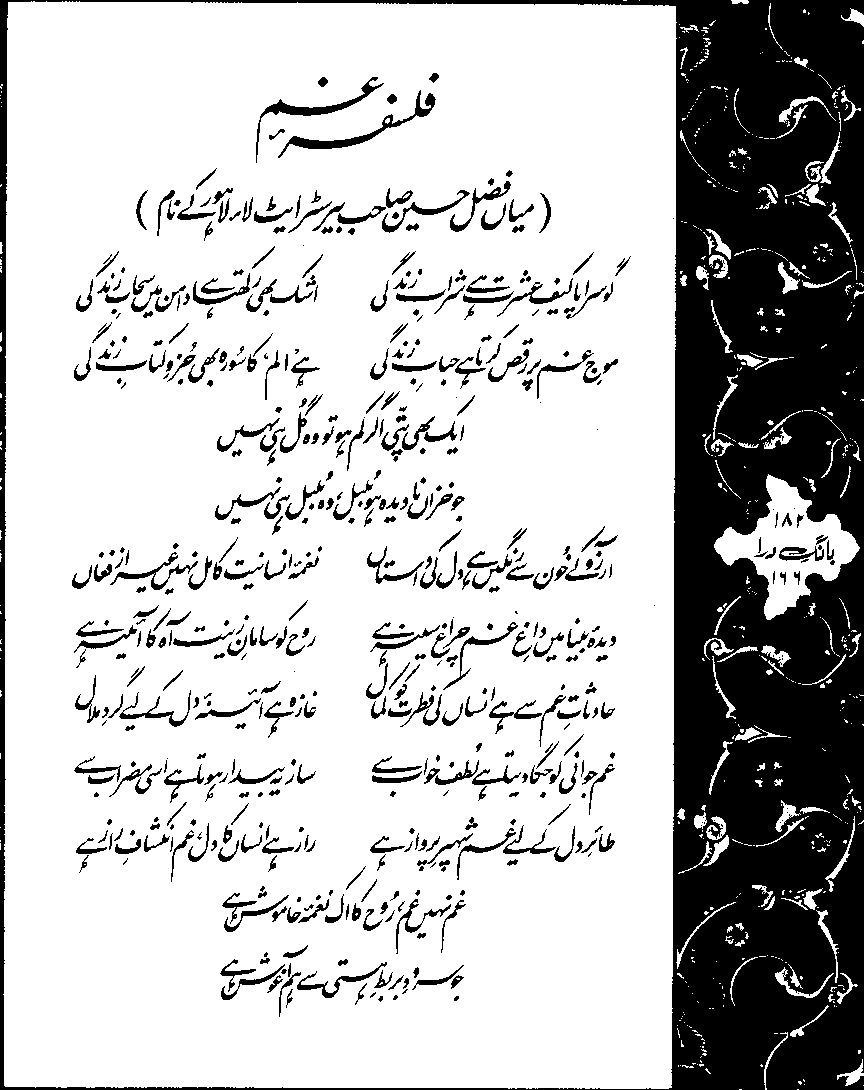 فلسفۂ غم
(میاں فضل حسین صاحب بیرسٹر ایٹ لاء لاہور کے نام)
گو سراپا کیفِ عشرت ہے شرابِ زندگی اشک بھی رکھتا ہے دامن میں سحابِ زندگی
موجِ غم پر رقص کرتا ہے حبابِ زندگی ہے ’الم‘ کا سُورہ بھی جُزوِ کتابِ زندگی
ایک بھی پتّی اگر کم ہو تو وہ گُل ہی نہیں
جو خزاں نادیدہ ہو بُلبل، وہ بُلبل ہی نہیں
آرزو کے خُون سے رنگیں ہے دل کی داستاں نغمۂ انسانیت کامل نہیں غیر از فغاں
دیدۂ بینا میں داغِ غم چراغِ سینہ ہے روح کو سامانِ زینت آہ کا آئینہ ہے
حادثاتِ غم سے ہے انساں کی فطرت کو کمال غازہ ہے آئینۂ دل کے لیے گردِ ملال
غم جوانی کو جگا دیتا ہے لُطفِ خواب سے ساز یہ بیدار ہوتا ہے اسی مضراب سے
طائرِ دل کے لیے غم شہپرِ پرواز ہے راز ہے انساں کا دل، غم انکشافِ راز ہے
غم نہیں غم، رُوح کا اک نغمۂ خاموش ہے
جو سرودِ بربطِ ہستی سے ہم آغوش ہے
۱۸۲
بانگِ درا
۱۶۶